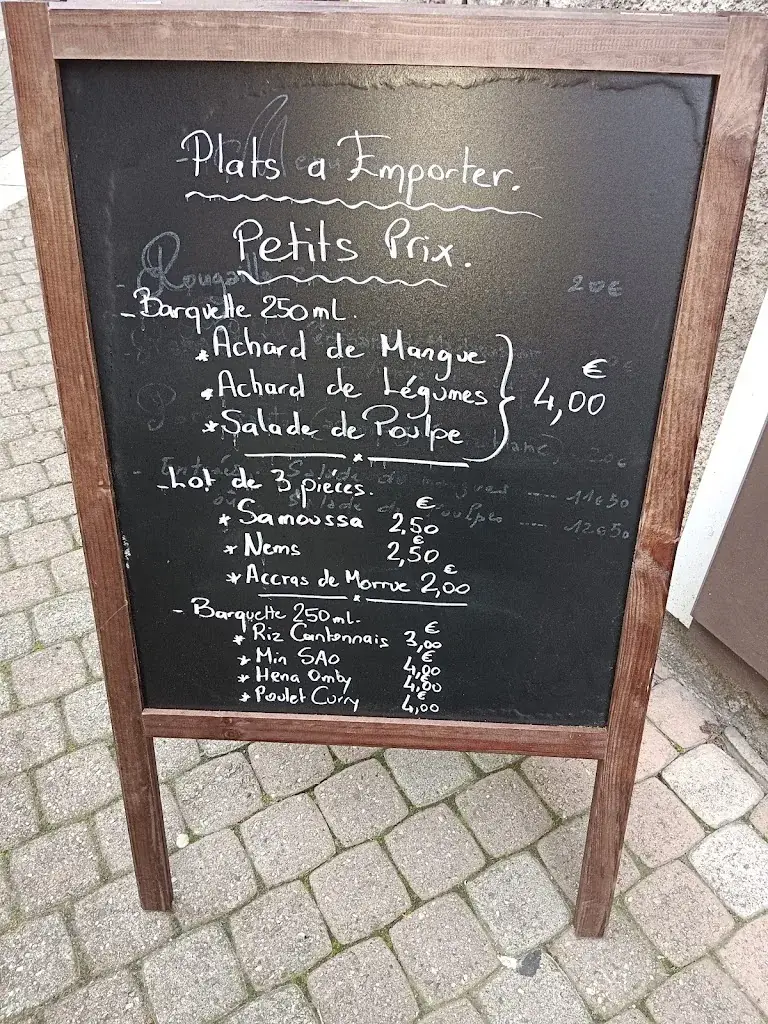 Plats a Emporter.
Petits Prix.
Rougaille 20€
- Barquette 250mL.
* Achard de Mangue
* Achard de Légumes
* Salade de Poulpe
} 4,00 €
- Lot de 3 pièces.
* Samoussa 2,50 €
* Nems 2,50 €
* Accras de Morrue 2,00 €
- Barquette 250mL.
* Riz Cantonnais 3,00 €
* Min SAO 4,00 €
* Hena Omby 4,00 €
* Poulet Curry 4,00 €